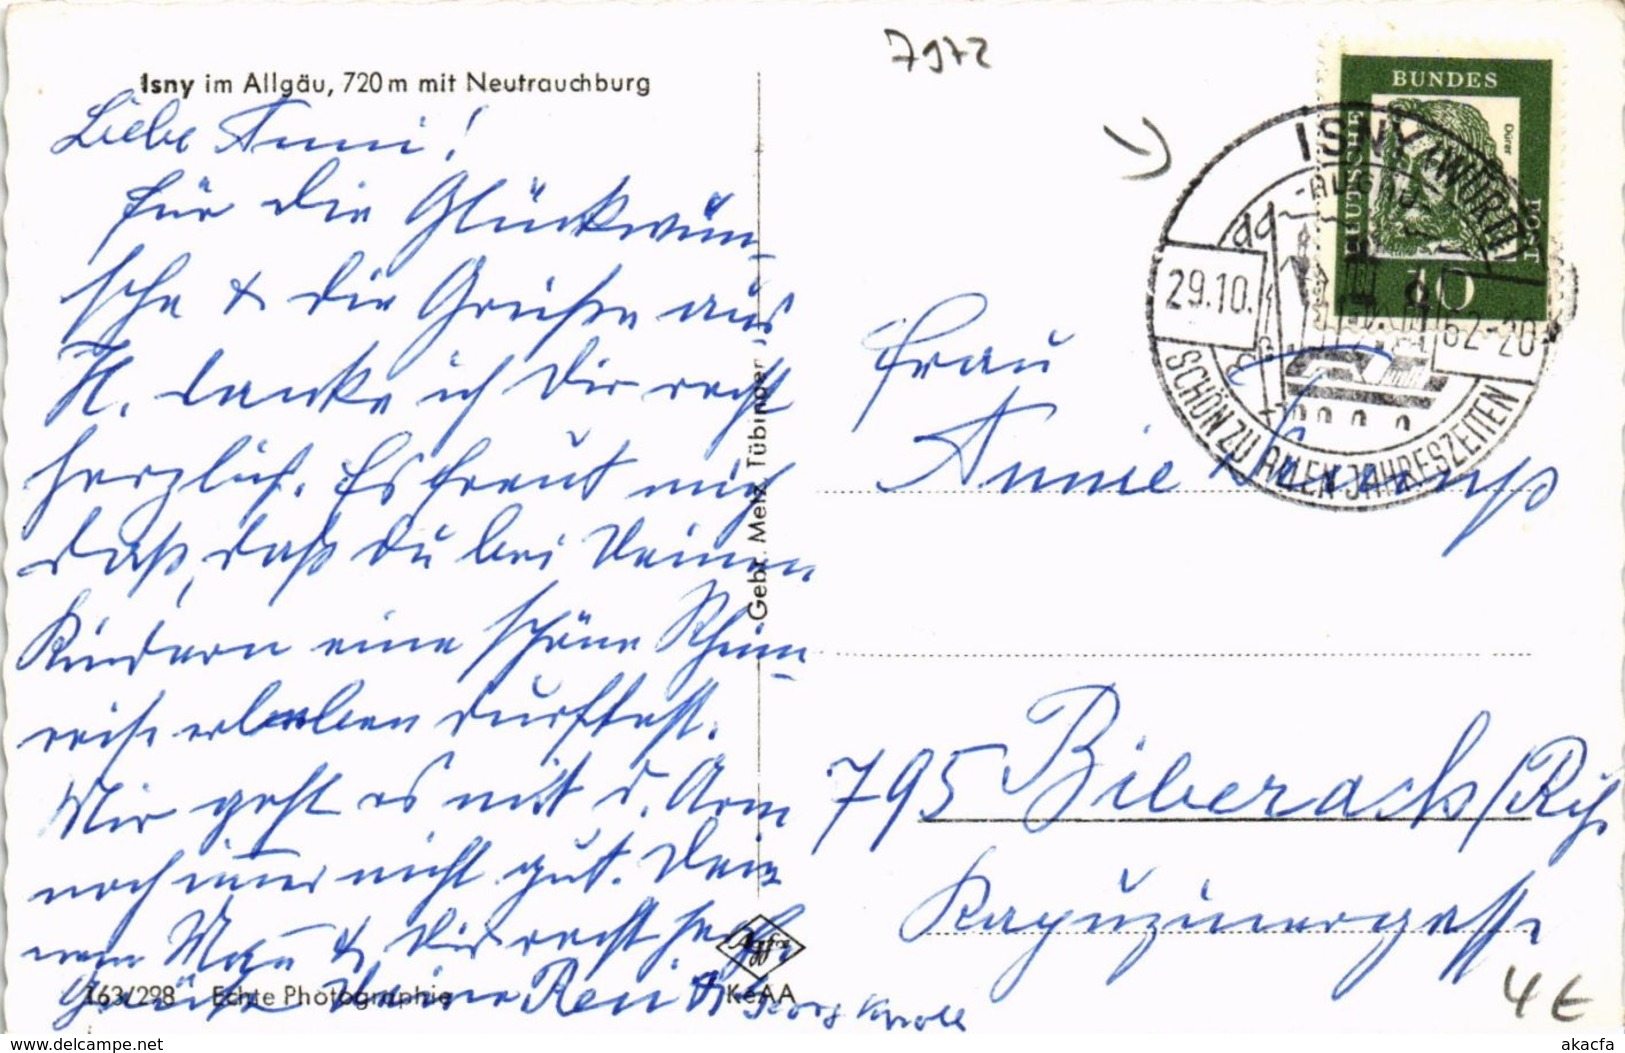 7972
Isny im Allgäu, 720 m mit Neutrauchburg
Liebe Anni!
für die Glückwün-
sche & die Grüße aus
H. danke ich Dir recht
herzlich. Es freut mich
daß, daß Du bei Deinen
Kindern eine schöne Rhein-
reise erleben durftest.
Mir geht es mit d. Arm
noch immer nicht gut. Dei-
nem Man̄ & Dir recht herzl.
Grüße Deine
Georg Knoll
163/298 Echte Photographie
Gebr. Metz Tübingen
Agfa
KeAA
DEUTSCHE
BUNDES
POST
Dürer
10
ISNY (WÜRTT)
29.10.62-20
SCHÖN ZU ALLEN JAHRESZEITEN
Frau
Annie
795 Biberach/Riß
Kapuzinergasse
4 €
delcampe.net
akacfa